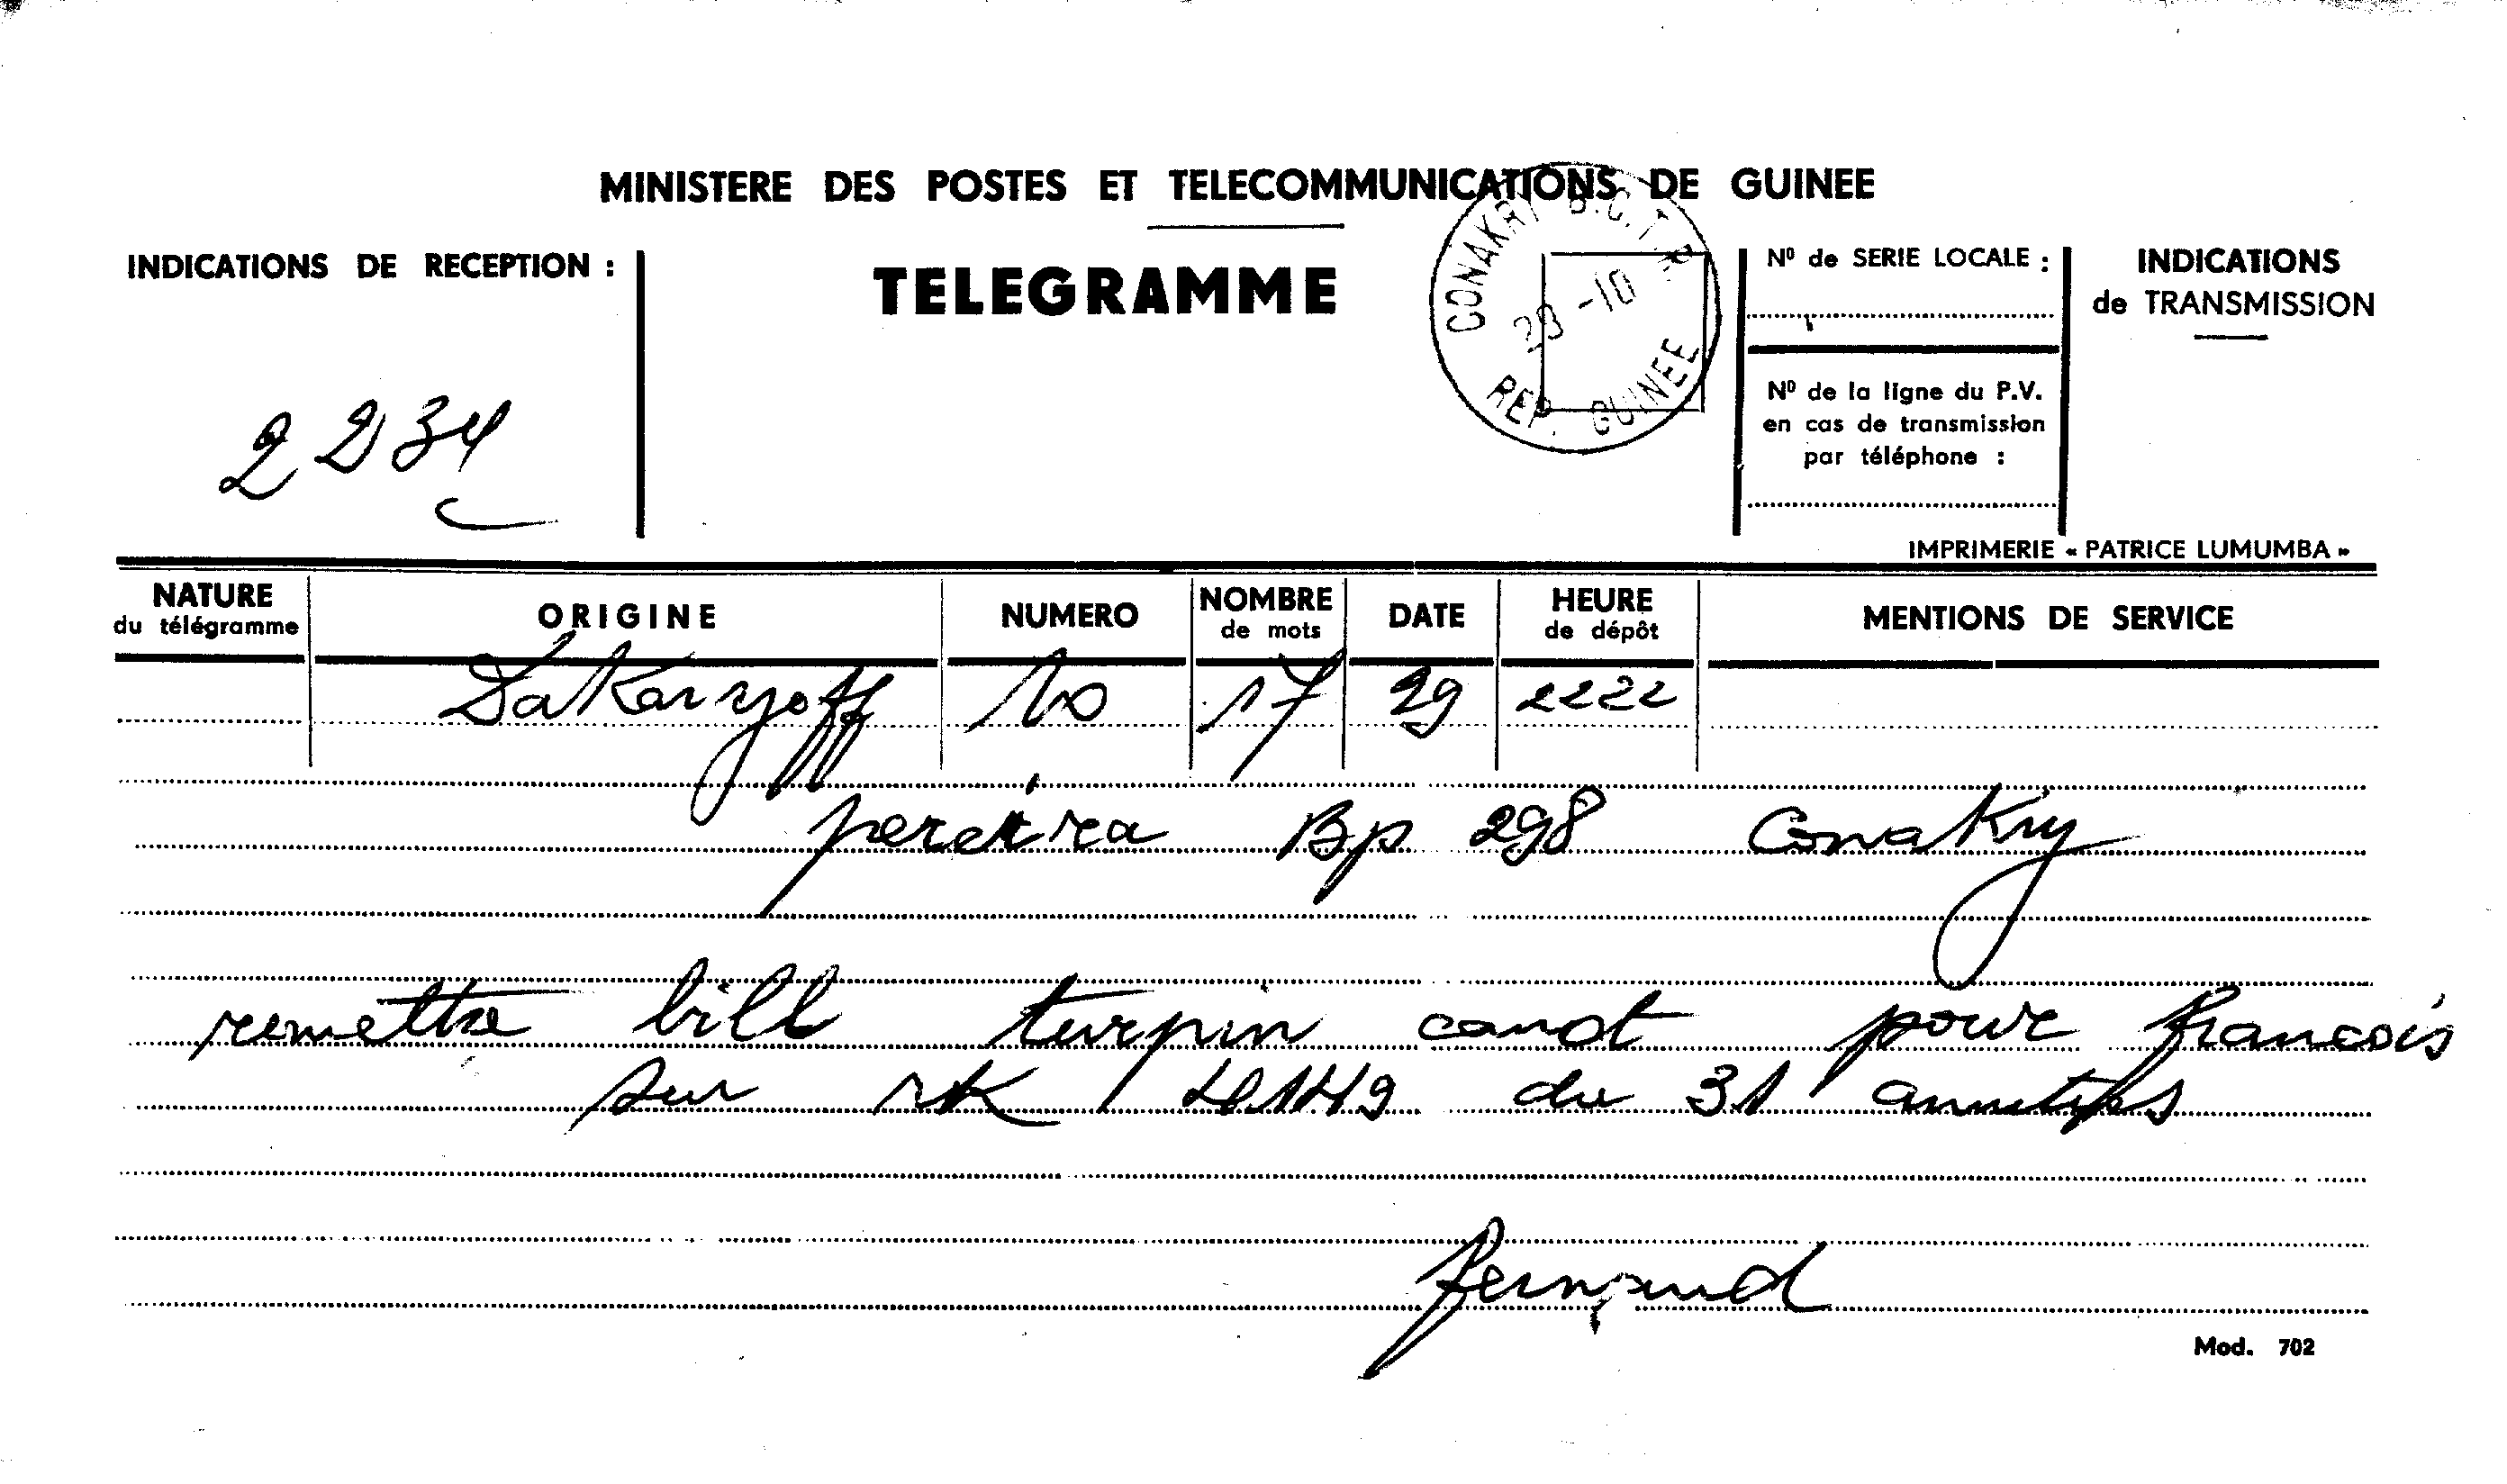 MINISTERE DES POSTES ET TELECOMMUNICATIONS DE GUINEE
INDICATIONS DE RECEPTION :
TELEGRAMME
CONAKRY
-10
REP. GUINEE
Nº de SERIE LOCALE :
Nº de la ligne du P.V.
en cas de transmission
par téléphone :
INDICATIONS
de TRANSMISSION
2234
IMPRIMERIE « PATRICE LUMUMBA »
NATURE
du télégramme
ORIGINE
NUMERO
NOMBRE
de mots
DATE
HEURE
de dépôt
MENTIONS DE SERVICE
Dakaryoff 10 17 29 2222
pereira Bp 298 Conakry
remettre bill turpin canot pour francois
sur rk 4149 du 31
fernand
Mod. 702